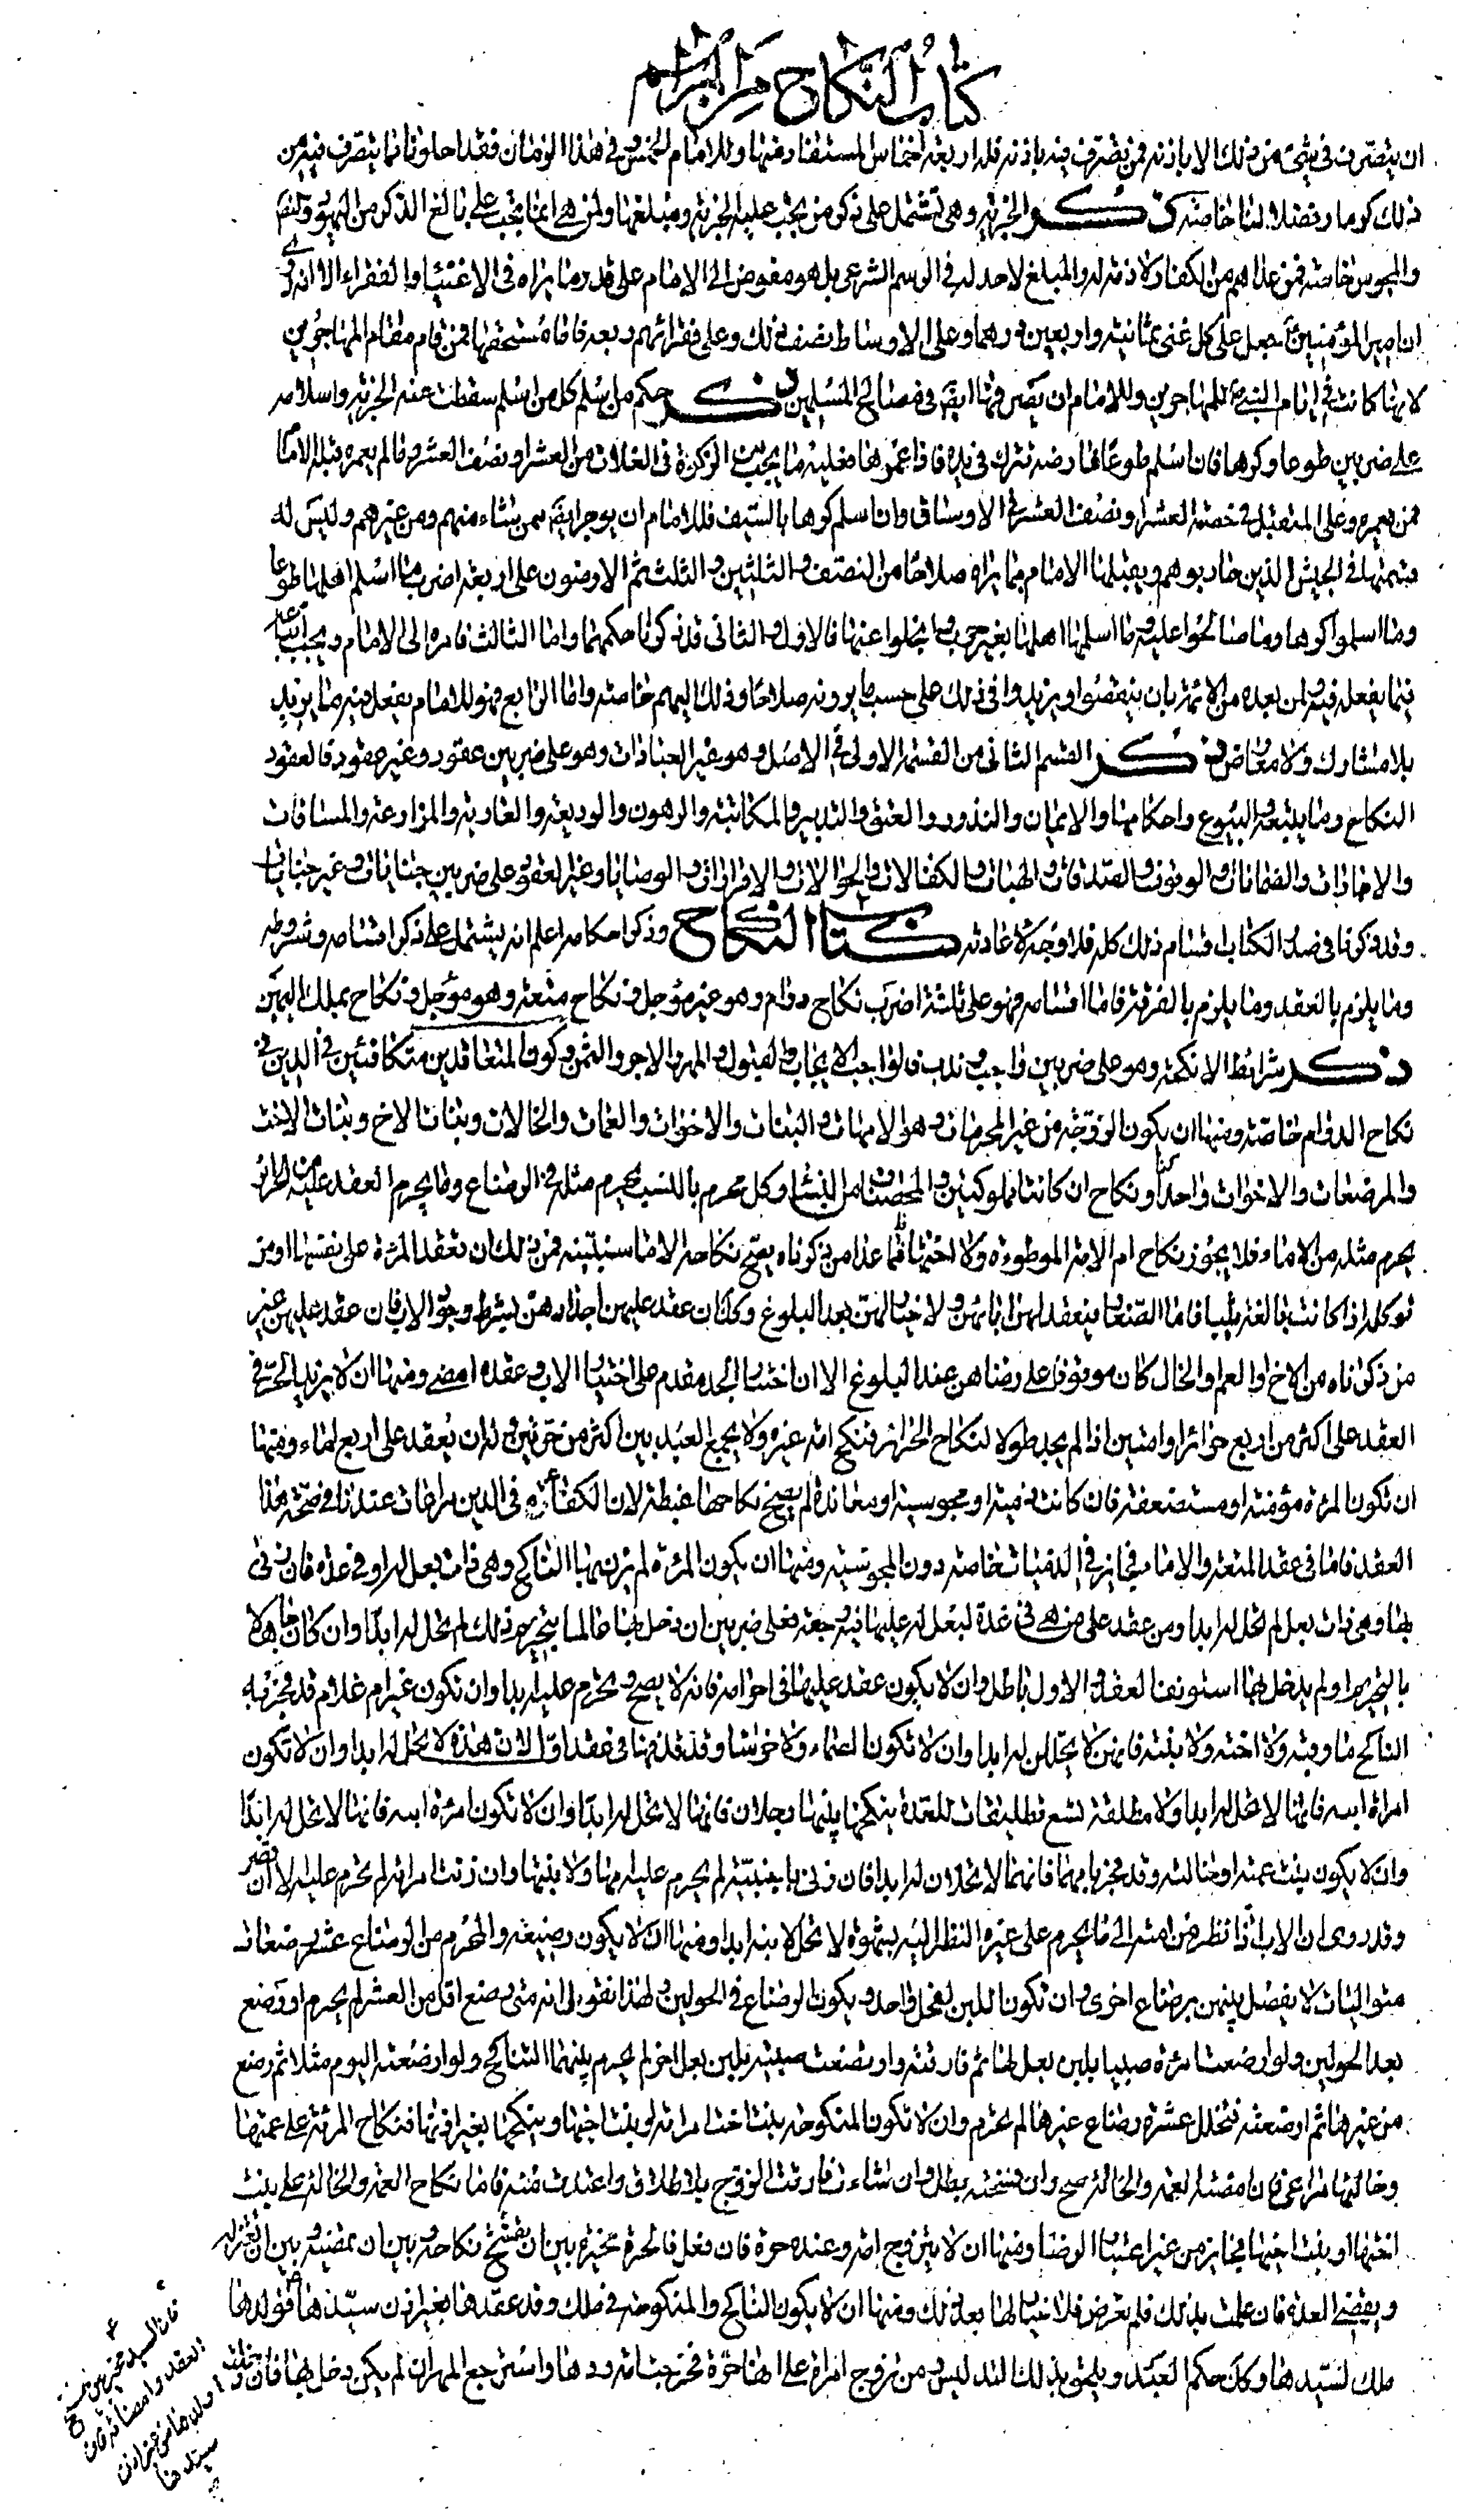 كتاب النكاح من المراسم
ان يتصرف فى شئ من ذلك الا باذنه فمن تصرف فيه باذنه فله اربعة اخماس المستفاد منها وللامام الخمس وفى هذا الزمان فقد احلونا بما يتصرف فيه من
ذلك كرما وفضلا لنا خاصة ذكر الجزية وهى تشتمل على ذكر من يجب عليه الجزية ومبلغها ولمن هى انما يجب على بالغ الذكر من اليهود والنصارى
والمجوس خاصة فمن عداهم من الكفار لا ذمة له والمبلغ لا حد له فى الرسم الشرعى بل هو مفوض الى الامام على قدر ما يراه فى الاغنياء والفقراء الا انه روى
ان امير المؤمنين جعل على كل غنى ثمانية واربعين درهما وعلى الاوساط نصف ذلك وعلى فقرائهم ربعه فاما مستحقها فمن قام مقام المهاجرين
لانها كانت فى ايام النبى للمهاجرين وللامام ان يصرفها ايضا فى مصالح المسلمين ذكر حكم من اسلم كل من اسلم سقطت عنه الجزية واسلامه
على ضربين طوعا وكرها فان اسلم طوعا فارضه تترك فى يده فاذا عمروها فعليه ما يجب من الزكوة فى الغلات من العشر او نصف العشر وما لم يعمره قبله الامام
ممن يعمره وعلى المتقبل فى حصته العشر او نصف العشر فى الاوساق وان اسلم كرها بالسيف فللامام ان يوجر ايضا ممن يشاء منهم ومن غيرهم وليس له
قسمتها فى الجيش الذين حاربوهم ويقبلها الامام بما يراه صلاحا من النصف والثلثين والثلث ثم الارضون على اربعة اضرب ما اسلم اهلها طوعا
وما اسلموا كرها وما صالحوا عليه وما اسلمها اهلها بغير حرب وانجلوا عنها فالاول والثانى قد ذكرنا حكمهما واما الثالث فامره الى الامام ويجب
فيما يفعله فيه لمن بعده من الائمة بان ينقصوا ويزيدوا فى ذلك على حسب ما يرونه صلاحا وذلك اليهم خاصة واما الرابع فهو للامام يفعل فيه ما يريد
بلا مشارك ولا معارض ذكر القسم الثانى من القسمة الاولى فى الاصل وهو غير العبادات وهو على ضربين عقود وغير عقود فالعقود
النكاح وما يتبعه والبيوع واحكامها والايمان والنذور والعتق والتدبير والمكاتبة والرهون والوديعة والعارية والمزارعة والمساقات
والاجارات والضمانات والوقوف والصدقات والهبات والكفالات والحوالات والاقرارات والوصايا وغير العقود على ضربين جنايات وغير جنايات
وقد ذكرنا فى صدر الكتاب اقسام ذلك كله فلا وجه لاعادته كتاب النكاح وذكر احكامه اعلم انه يشتمل على ذكر اقسامه وشروطه
وما يلزم بالعقد وما يلزم بالفرقة فاما اقسامه فهو على ثلثة اضرب نكاح دوام وهو غير مؤجل ونكاح متعة وهو مؤجل ونكاح بملك اليمين
ذكر شرائط الانكحة وهو على ضربين واجب وندب فالواجب الايجاب والقبول والمهر والاجر والثمن وكون المتعاقدين متكافئين فى الدين فى
نكاح الدوام خاصة ومنها ان يكون الزوجة من غير المحرمات وهو الامهات والبنات والاخوات والعمات والخالات وبنات الاخ وبنات الاخت
والمرضعات والاخوات واحد او نكاح ان كانتا مملوكتين والمحصنات من النساء وكل محرم بالنسب يحرم مثله فى الرضاع وما يحرم العقد عليه من الحرائر
يحرم مثله من الاماء فلا يجوز نكاح ام الامة الموطوءة ولا اختها فما عدا من ذكرناه يصح نكاحه الا ما سنبينه فمن ذلك ان تعقد المرءة على نفسها او من
توكله اذا كانت بالغة ثيبا فاما الصغار فيعقد لهن اباؤهن ولا خيار لهن بعد البلوغ وكذا ان عقد عليهن اجدادهن بشرط وجود الاب فان عقد عليهن غير
من ذكرناه من الاخ والعم والخال كان موقوفا على رضاهن عند البلوغ الا ان اختيار الجد مقدم على اختيار الاب وعقده امضى ومنها ان لا يزيد الحر فى
العقد على اكثر من اربع حرائر او امتين اذا لم يجد طولا لنكاح الحرائر فنكح امة غيره ولا يجمع العبد بين اكثر من حرتين وله ان يعقد على اربع اماء ومنها
ان تكون المرءة مؤمنة او مستضعفة فان كانت ذمية او مجوسية او معاندة لم يصح نكاحها غبطة لان الكفاءة فى الدين مراعات عندنا فى صحة هذا
العقد فاما فى عقد المتعة والاماء فجائز فى الذميات خاصة دون المجوسية ومنها ان يكون المرءة لم يزن بها الناكح وهى ذات بعل له او فى عدة فان زنى
بها وهى ذات بعل لم تحل له ابدا ومن عقد على من هى فى عدة لبعل له عليها فيه رجعة فعلى ضربين ان دخل بها عالما بتحريم ذلك لم تحل له ابدا وان كان جاهلا
بالتحريم او لم يدخل بها استونف العقد والاول باطل وان لا يكون عقد عليها فى احرامه فانه لا يصح وتحرم عليه ابدا وان تكون غير ام غلام قد فجر به
الناكح فاوقبه ولا اخته ولا بنته فانهن لا يحللن له ابدا وان لا تكون العمياء ولا خرساء وقد قذفها فى عقد اول لان هذه لا تحل له ابدا وان لا تكون
امراة ابيه فانها لا تحل له ابدا ولا مطلقة تسع تطليقات للعدة ينكحها بينها رجلان فانها لا تحل له ابدا وان لا تكون امرءة ابنه فانها لا تحل له ابدا
وان لا يكون بنت عمته او خالته وقد فجر بامهما فانهما لا تحلان له ابدا فان زنى باجنبية لم يحرم عليه امها ولا بنتها وان زنت امراته لم تحرم عليه الا ان تصر
وقد روى ان الاب اذا نظر من امته الى ما يحرم على غيره النظر اليه بشهوة لا تحل لابنه ابدا ومنها ان لا يكون رضيعته والمحرم من الرضاع عشر رضعات
متواليات لا يفصل بينهن برضاع اخرى وان تكون اللبن لفحل واحد ويكون الرضاع فى الحولين ولهذا نقول انه متى رضع اقل من العشر لم يحرم او رضع
بعد الحولين ولو ارضعت امرءة صبيا بلبن بعل لها ثم فارقته وارضعت صبية بلبن بعل اخر لم يحرم بينهما التناكح ولو ارضعته اليوم مثلا ثم رضع
من غيرها ثم ارضعته فتخلل عشرة رضاع غيرها لم تحرم وان لا تكون المنكوحة بنت اخت امراته او بنت اخيها وينكحها بغير اذنها فنكاح المرئة على عمتها
وخالتها مراعى فان امضته العمة والخالة صح وان فسخته بطل وان شاءت فارقت الزوج بلا طلاق واعتدت منه فاما نكاح العمة والخالة على بنت
اختها او بنت اخيها فجائز من غير اعتبار الرضا ومنها ان لا يتزوج امة وعنده حرة فان فعل فالحرة مخيرة بين ان يفسخ نكاحه وبين ان تمضيه وبين ان تعتزله
ويقضى العدة فان علمت بذلك فلم تعرض فلا خيار لها بعد ذلك ومنها ان لا يكون الناكح والمنكوحة فى ملك وقد عقدها بغير اذن سيدها فولدها
ملك لسيدها وكذا حكم العبد ويلحق بذلك التدليس ومن تزوج امراة على انها حرة فخرجت امة ردها واسترجع المهر ان لم يكن دخل بها فان
فان السيد مخير بين فسخ
العقد وامضائه فان
اولدها من غير اذن
سيدها